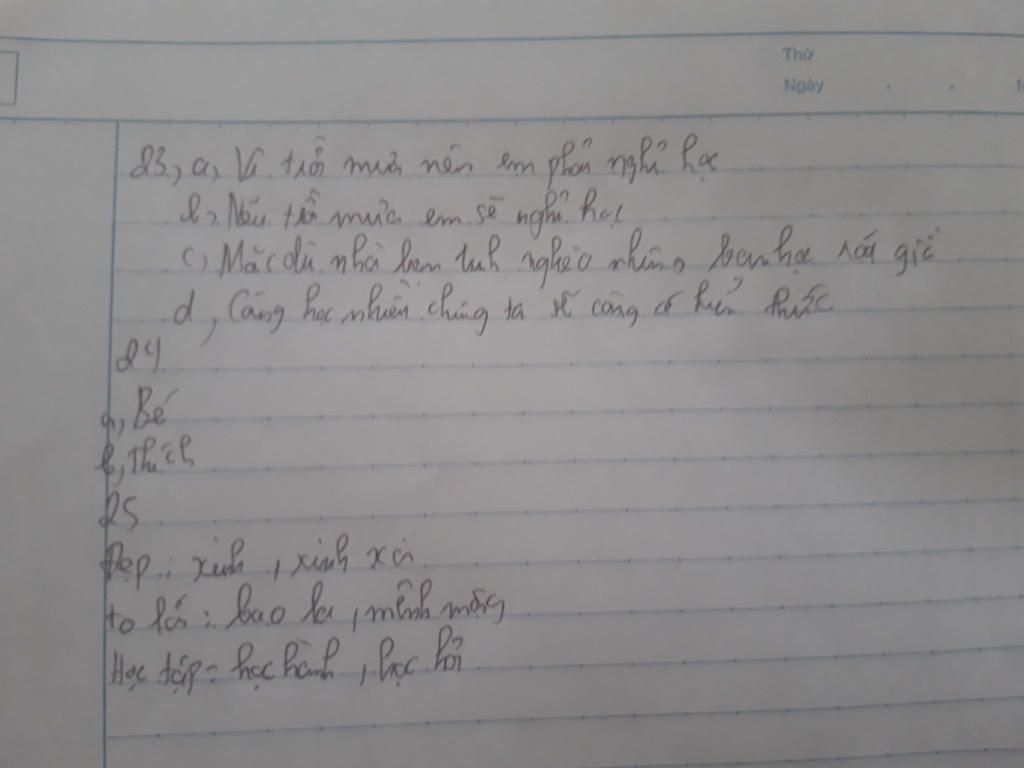 Thứ
Ngày
23, a, Vì trời mưa nên em phải nghỉ học
b, Nếu trời mưa em sẽ nghỉ học
c, Mặc dù nhà bạn nghèo nhưng bạn học rất giỏi
d, Càng học nhiều chúng ta sẽ càng có kiến thức
24
a, Bé
b, Thích
25
Đẹp : xinh, xinh xắn
to lớn : bao la, mênh mông
Học tập : học hành, học hỏi